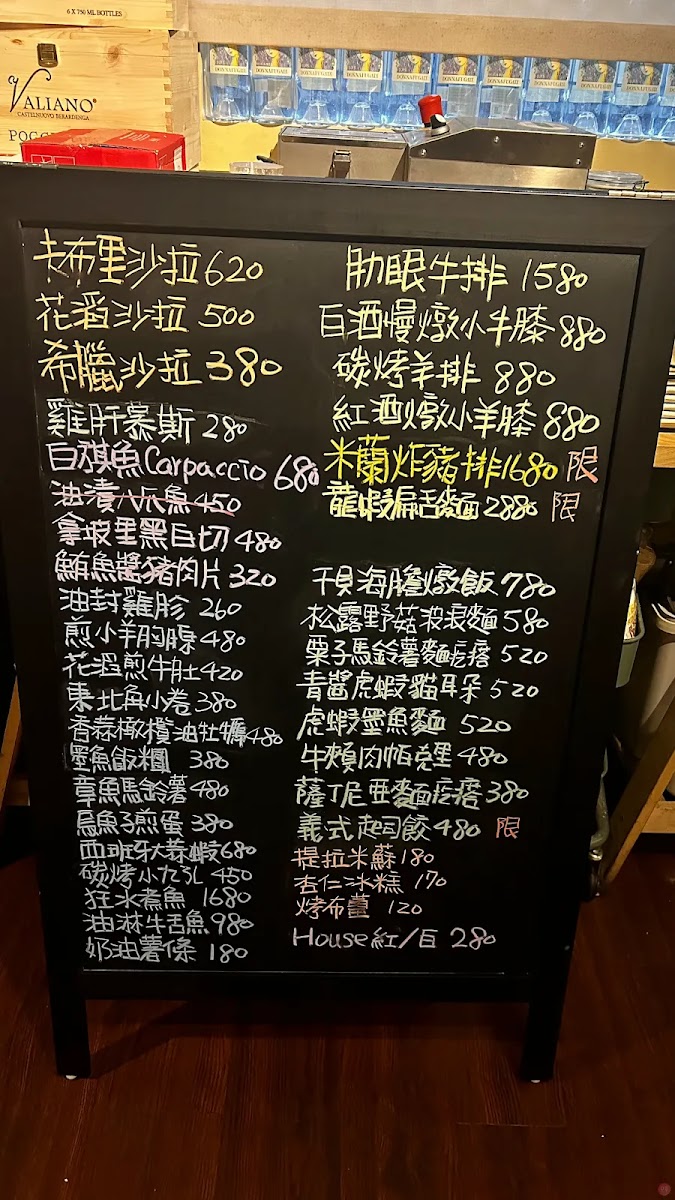 6 X 750 ML BOTTLES
VALIANO
CASTELNUOVO BERARDENGA
POGG
DONNAFUGATA
卡布里沙拉620
花滔沙拉 500
希臘沙拉380
雞肝慕斯 280
白旗魚Carpaccio 680
油漬小卷魚450
拿坡里黑白切 480
鮪魚醬豬肉片 320
油封雞胗 260
煎小羊胸腺 480
花滔煎牛肚420
東北角小卷 380
香蒜橄欖油牡蠣480
墨魚飯糰 380
章魚馬鈴薯480
烏魚子煎蛋 380
西班牙大蒜蝦680
碳烤小九孔 450
狂水煮魚 1680
油淋牛舌魚980
奶油薯條 180
肋眼牛排 1580
白酒慢燉小牛膝 880
碳烤羊排 880
紅酒燉小羊膝 880
米蘭炸豬排1680 限
龍蝦扁舌麵2880 限
干貝海膽燉飯780
松露野菇波浪麵580
栗子馬鈴薯麵疙瘩 520
青醬虎蝦貓耳朵 520
虎蝦墨魚麵 520
牛頰肉帕克里480
薩丁尼亞麵疙瘩380
義式起司餃480 限
提拉米蘇180
杏仁冰糕 170
烤布蕾 120
House紅/白 280